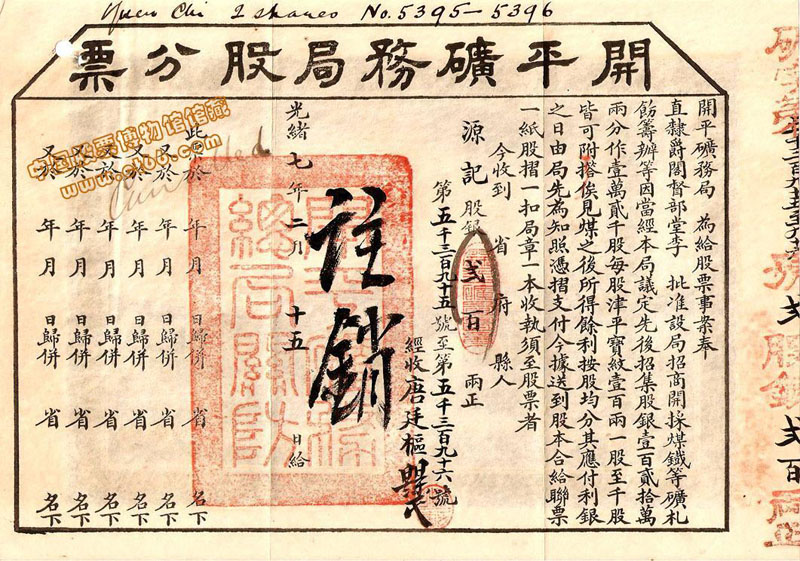 Yuen Chi 2 shares No. 5395-5396
開平礦務局股分票
開平礦務局 為給股票事案奉
直隸爵閣督部堂李 批准設局招商開採煤鐵等礦札
飭籌辦等因當經本局議定先後招集股銀壹百貳拾萬
兩分作壹萬貳千股每股津平寶紋壹百兩一股至千股
皆可附搭俟見煤之後所得餘利按股均分其應付利銀
之日由局先為知照憑摺支付今據送到股本合給聯票
一紙股摺一扣局章一本收執須至股票者
今收到 省 府 縣人
源記 股銀 貳百 兩正
第五千三百九十五號至第五千三百九十六號
經收唐廷樞
註銷
光緒七年二月十五日給
此票於 年 月 日歸併 省 名下
又於 年 月 日歸併 省 名下
又於 年 月 日歸併 省 名下
又於 年 月 日歸併 省 名下
又於 年 月 日歸併 省 名下
Cancelled
中国股票博物馆馆藏
股銀貳百兩正